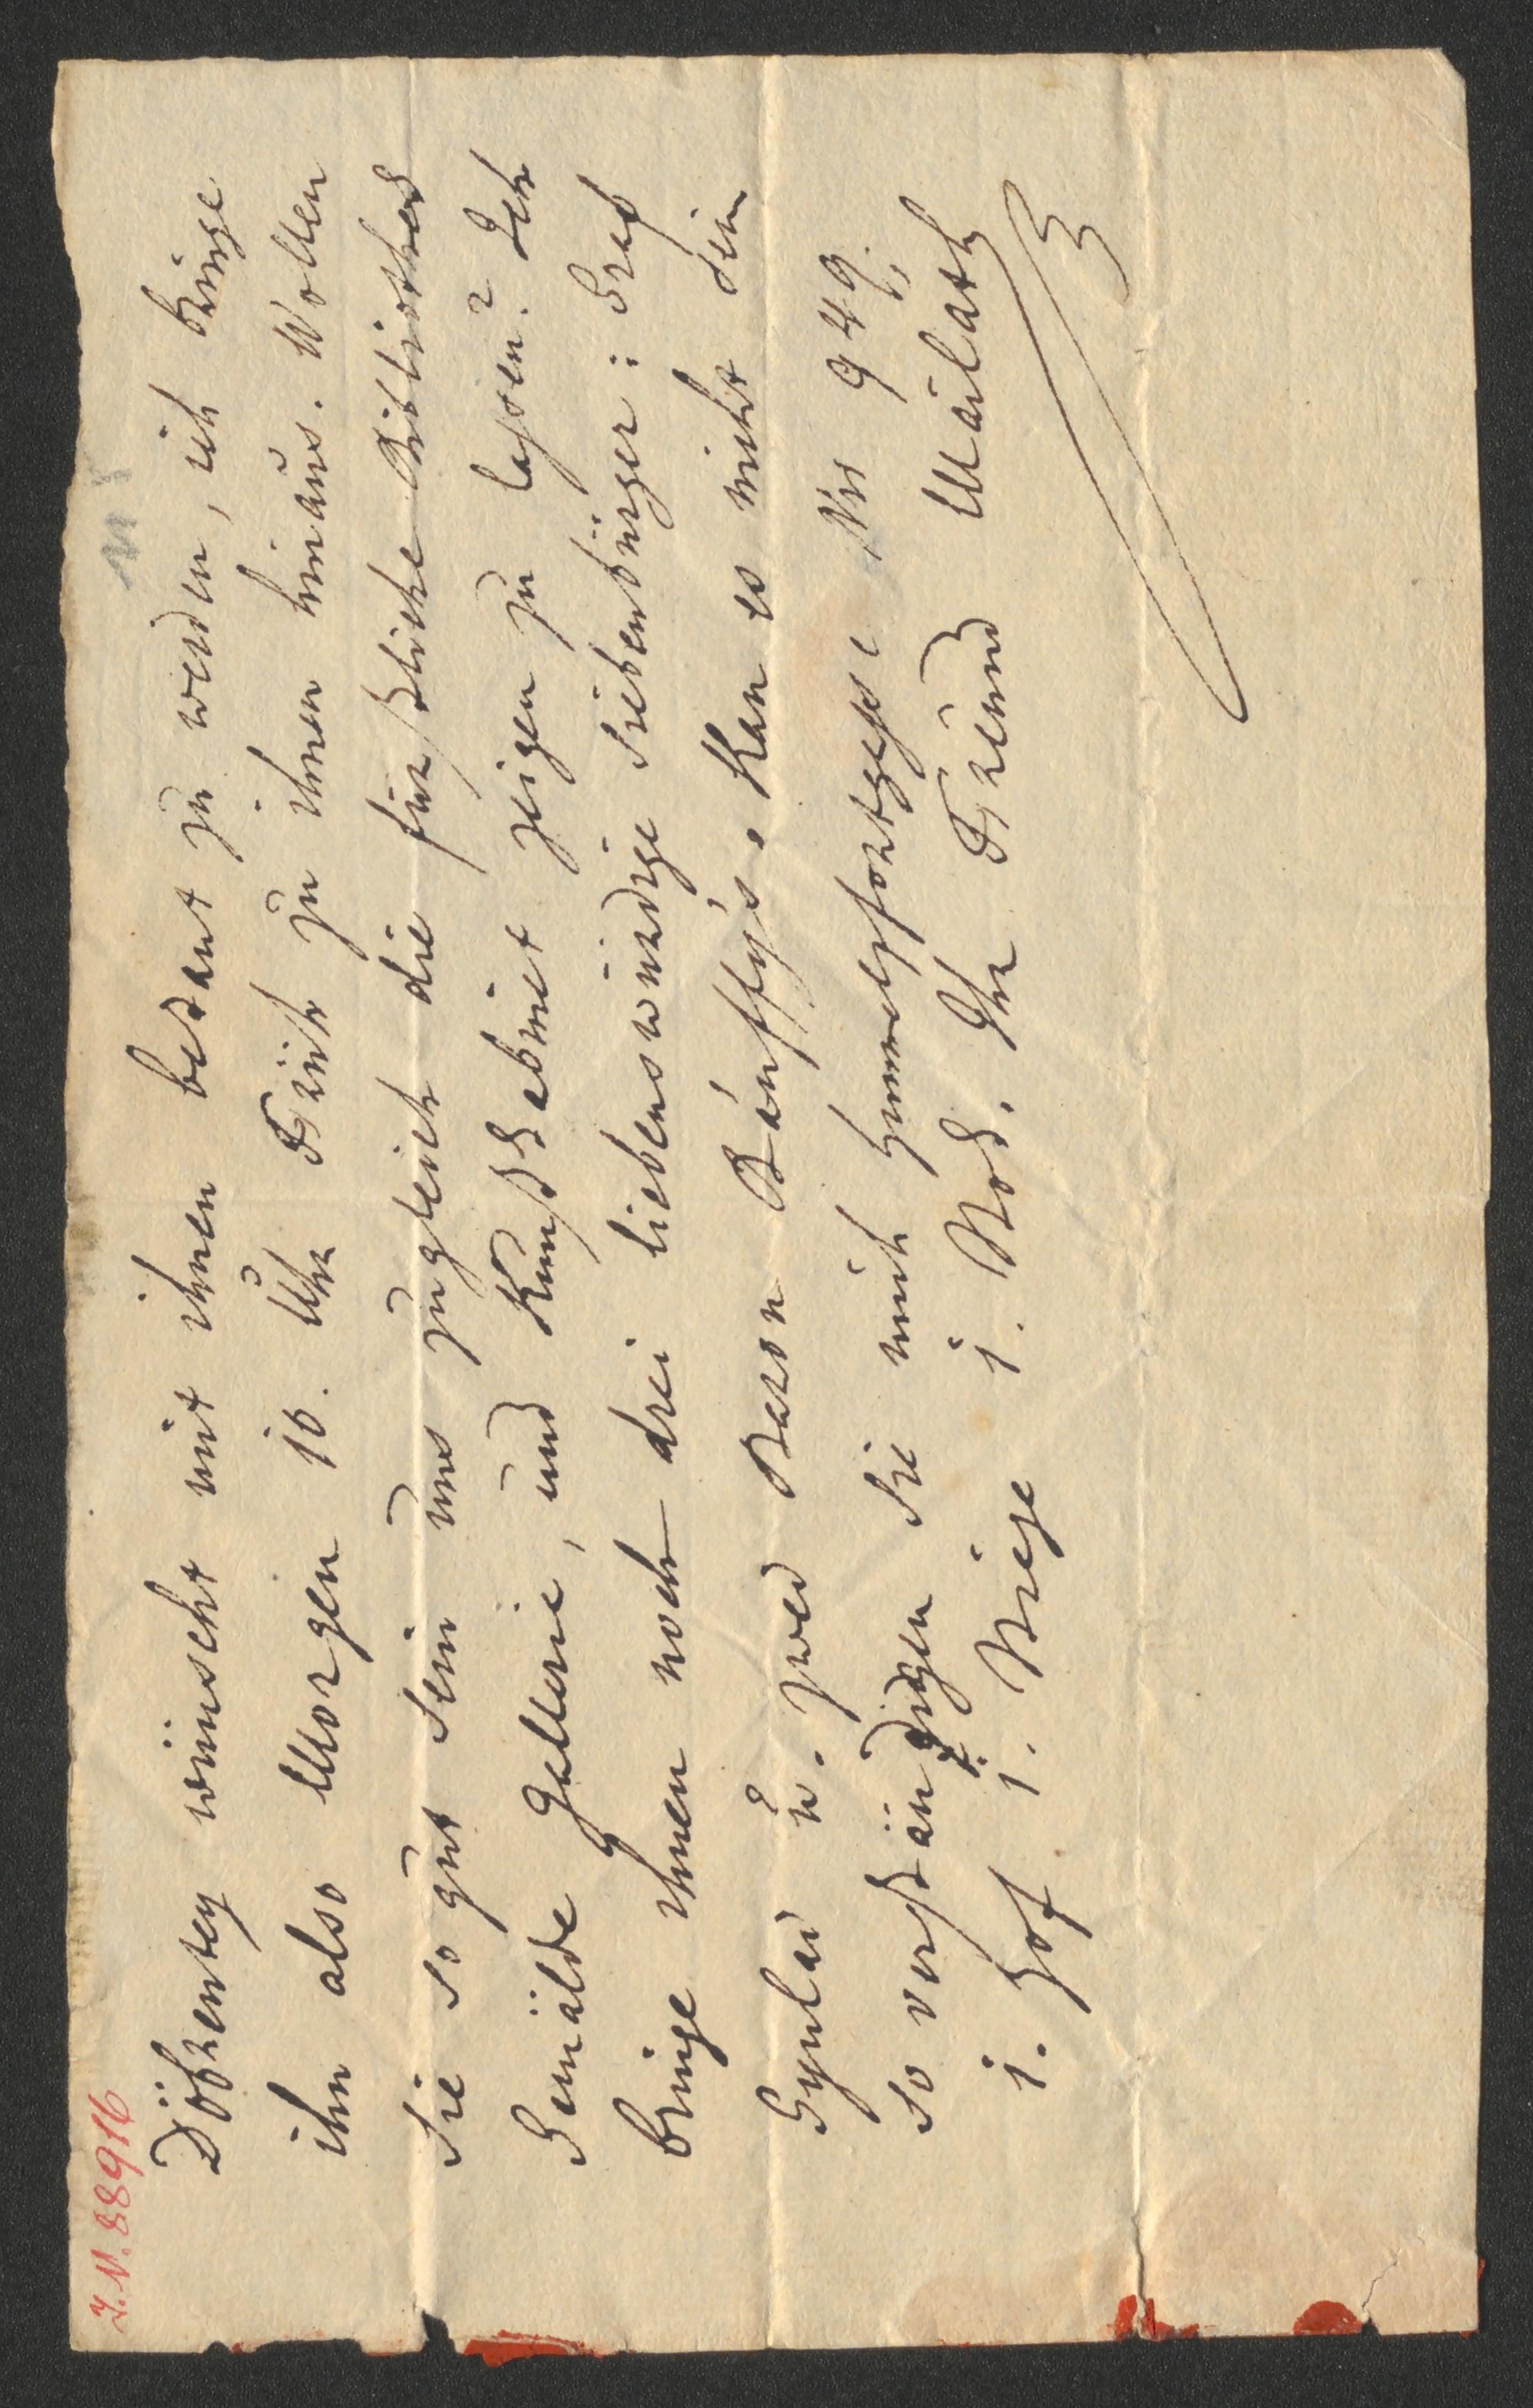 I. N. 88916
Döbrentey wünscht mit ihnen bekant zu werden, ich bringe
ihn also Morgen 10. Uhr Früh zu ihnen hinaus. Wollen
Sie so gut sein uns zugleich die fürstliche Bibliothek
Gemälde Gallerie, und Kunstkabinet zeigen zu lassen? Ich
bringe ihnen noch drei liebenswürdige Siebenbürger: Graf
Gyulai u. zwei Baron Bánffy's. Kan es nicht sein
so verständigen Sie mich Himmelpfortgasse Nro 949.
1. Hof 1. Stiege 1. Stock. Ihr Freund Mailath